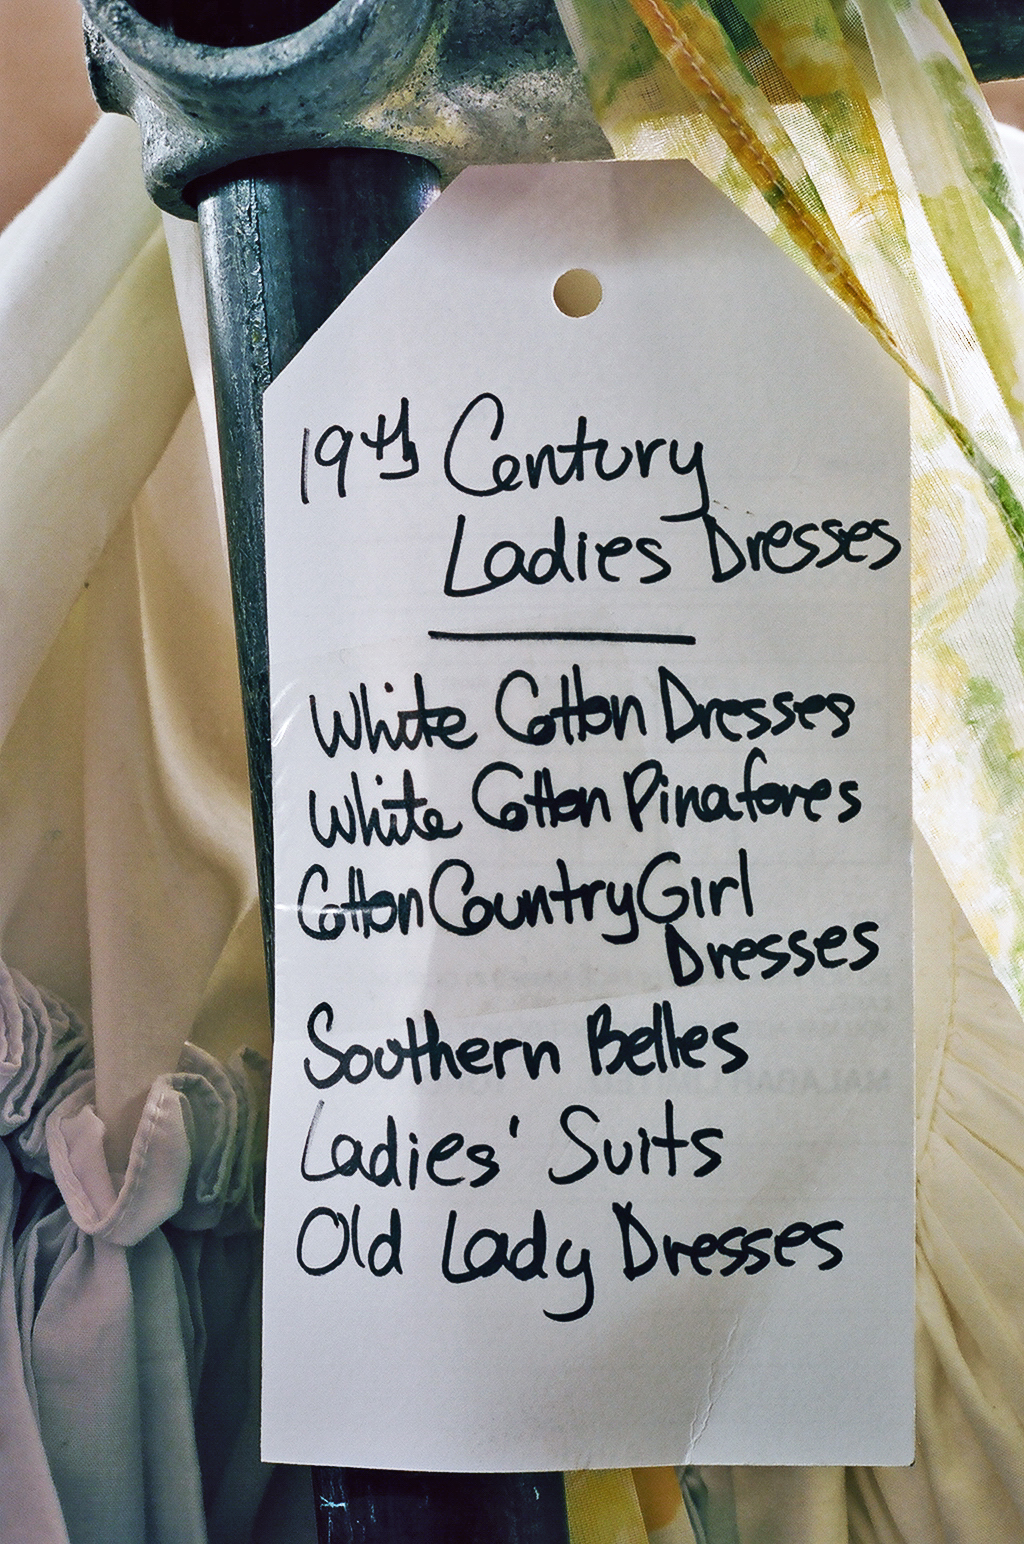 19th Century
Ladies Dresses
White Cotton Dresses
White Cotton Pinafores
Cotton Country Girl
Dresses
Southern Belles
Ladies' Suits
Old Lady Dresses